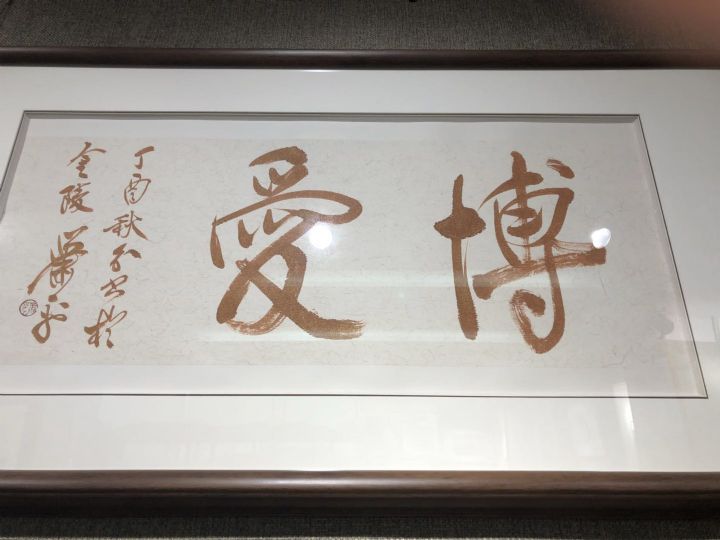 博愛
丁酉秋月書於
金陵